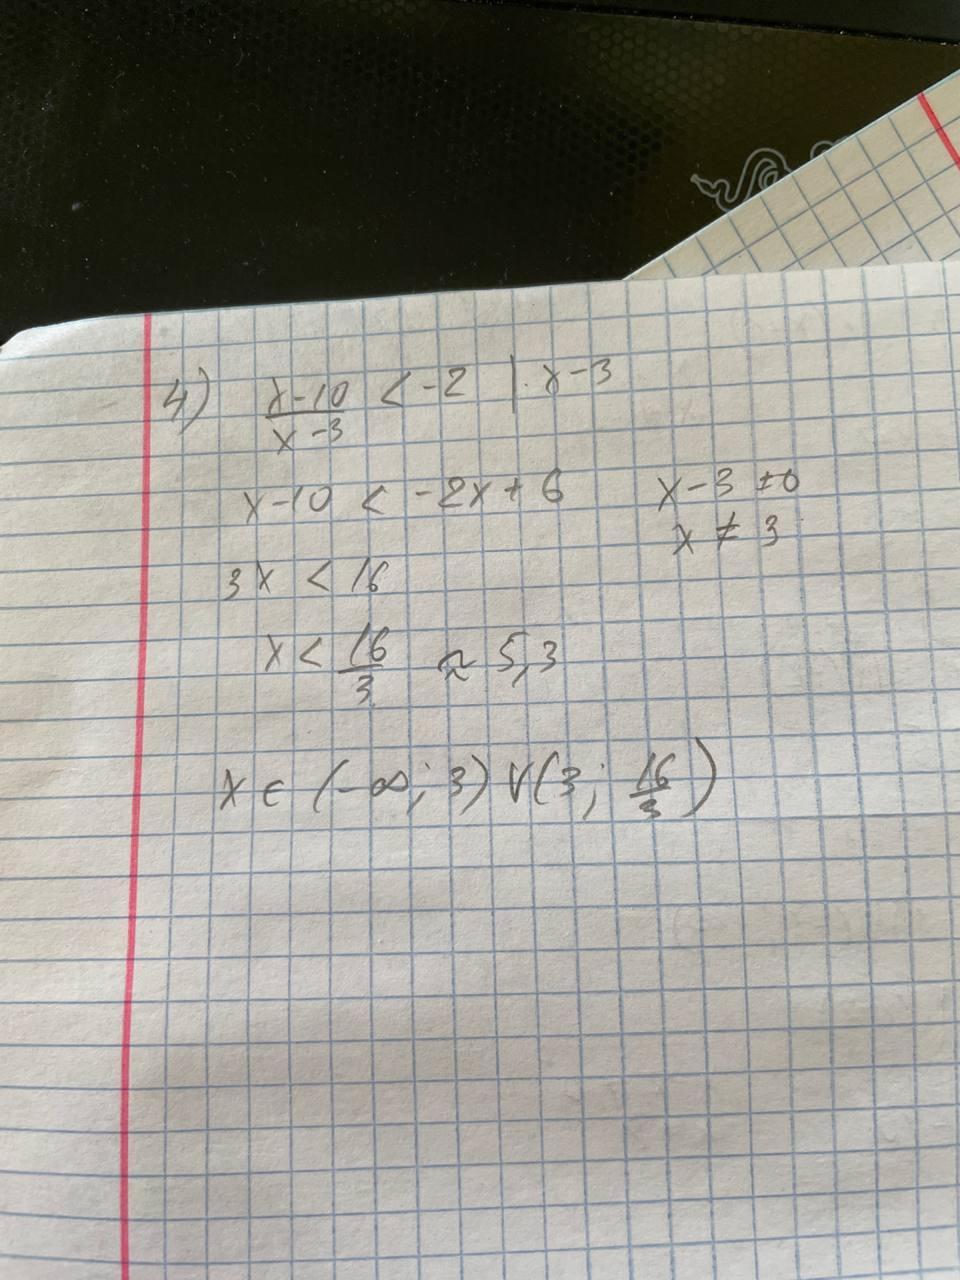 4) x-10/x-3 < -2 | · x-3
x-10 < -2x+6 x-3 ≠0
x ≠ 3
3x < 16
x < 16/3 ≈ 5,3
x ∈ (-∞; 3) ∨ (3; 16/3)